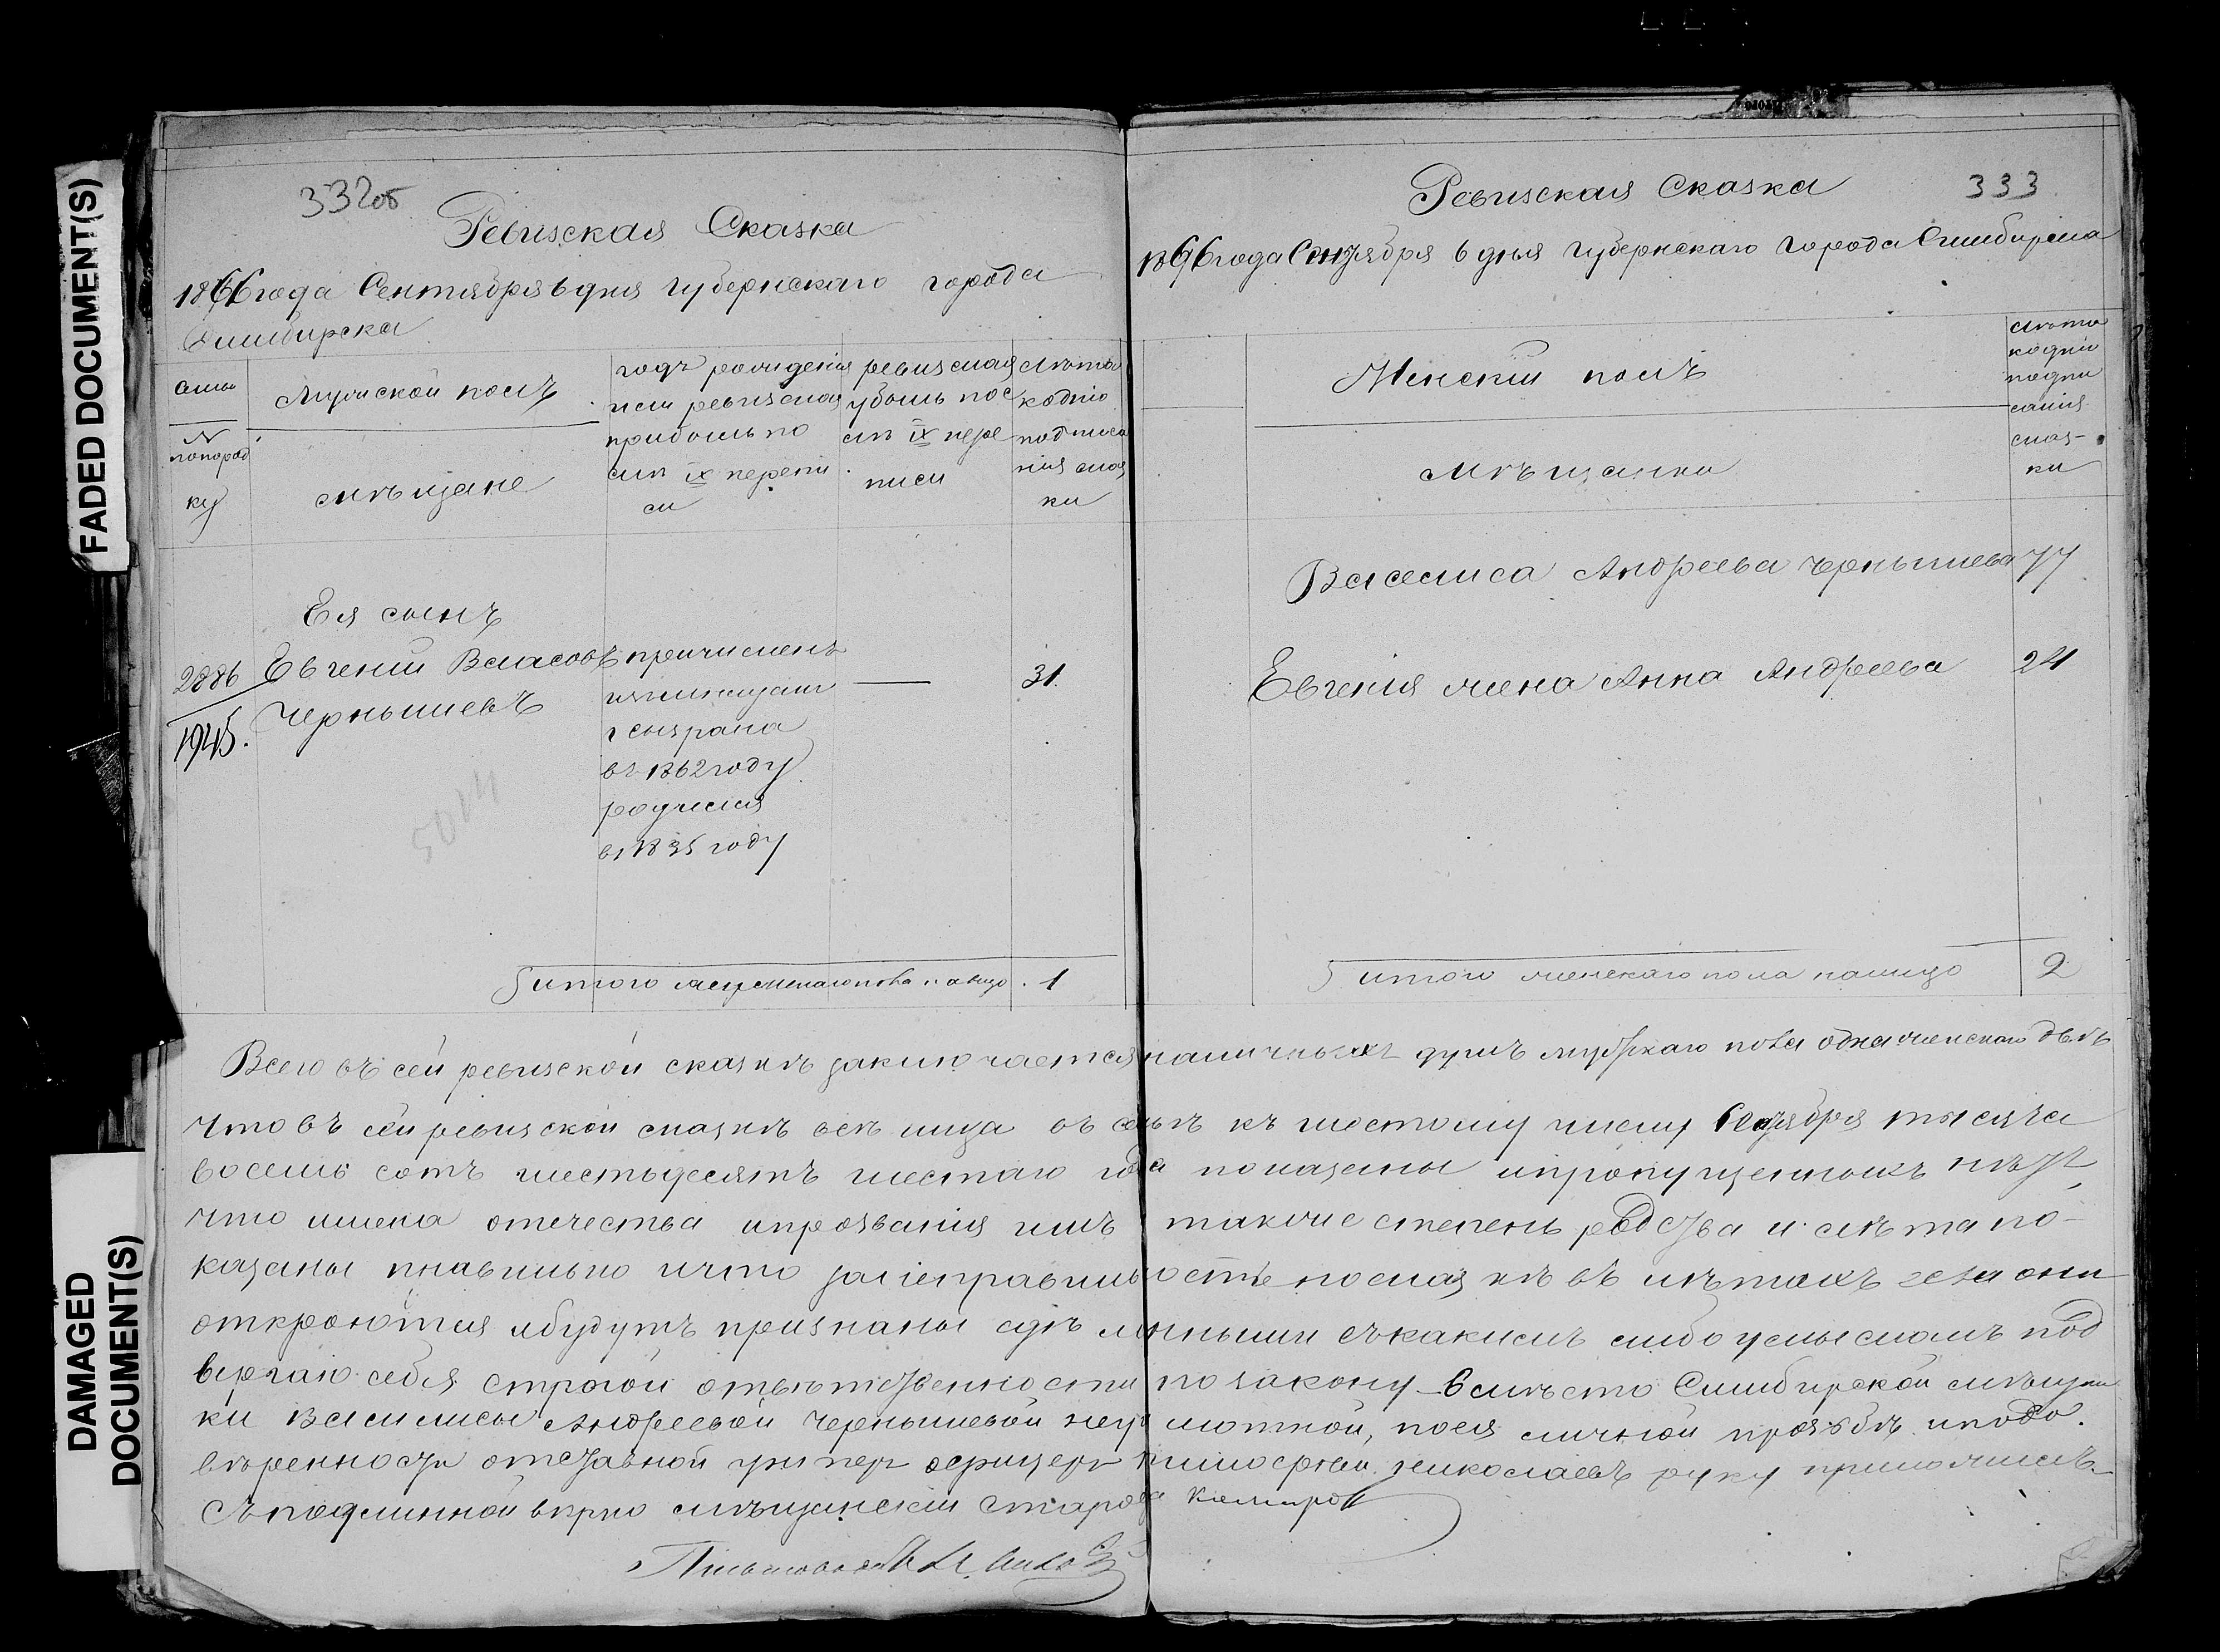 FADED DOCUMENT(S)
DAMAGED
DOCUMENT(S)
332об
Ревизская Сказка
1866 года Сентября 6 дня губернскаго города
Симбирска
Мужской полъ
№
по поряд
ку
мѣщане
годъ рожденія
или ревизская
прибыль по
слѣ IX перепи
си
ревизская
убыль пос
лѣ IX пере
писи
лѣта
ко дню
подписа
нія сказ
ки
Ея сынъ
2886
1945.
Евгений Власовъ
Чернышевъ
причисленъ
г Сызрана
въ 1862 году
родился
въ 1835 году
31.
5014
Итого мужескаго пола на лицо . 1
333
Ревизская Сказка
1866 года Сентября 6 дня губернскаго города Симбирска
Женский полъ
мѣщанки
лѣта
ко дню
подпи
санія
сказ-
ки
Василиса Андреева Чернышева 77
Евгения жена Анна Андреева 24
Итого женскаго пола на лицо 2
Всего въ сей ревизской сказкѣ заключается наличныхъ душъ мужскаго пола одна женскаго двѣ
что въ сей ревизской сказкѣ всѣ лица въ семьѣ къ шестому числу Сентября тысяча
восемь сотъ шестьдесятъ шестаго года показаны и пропущенныхъ нѣтъ,
что имена отечества и прозванія имъ также степень родства и лѣта по-
казаны правильно и что за неправильности по сказкѣ въ лѣтахъ если они
откроются и будутъ признаны сдѣланными съ какимъ либо умысломъ под
вергаю себя строгой отвѣтственности по закону вмѣсто Симбирской мѣщан
ки Василисы Андреевой Чернышевой неграмотной, по ея личной прозьбѣ и по до.
вѣренности отставной унтер офицеръ Тимофей руку приложилъ
Съ подлинной вѣрно мѣщанский Староста